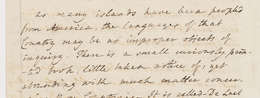 as many islands have been peopled
from America, the languages of that
Country may be no improper objects of
inquiry. There is a small curiously prin-
ted book, little taken notice of, yet
abounding with much matter concer-
It is called De Laet